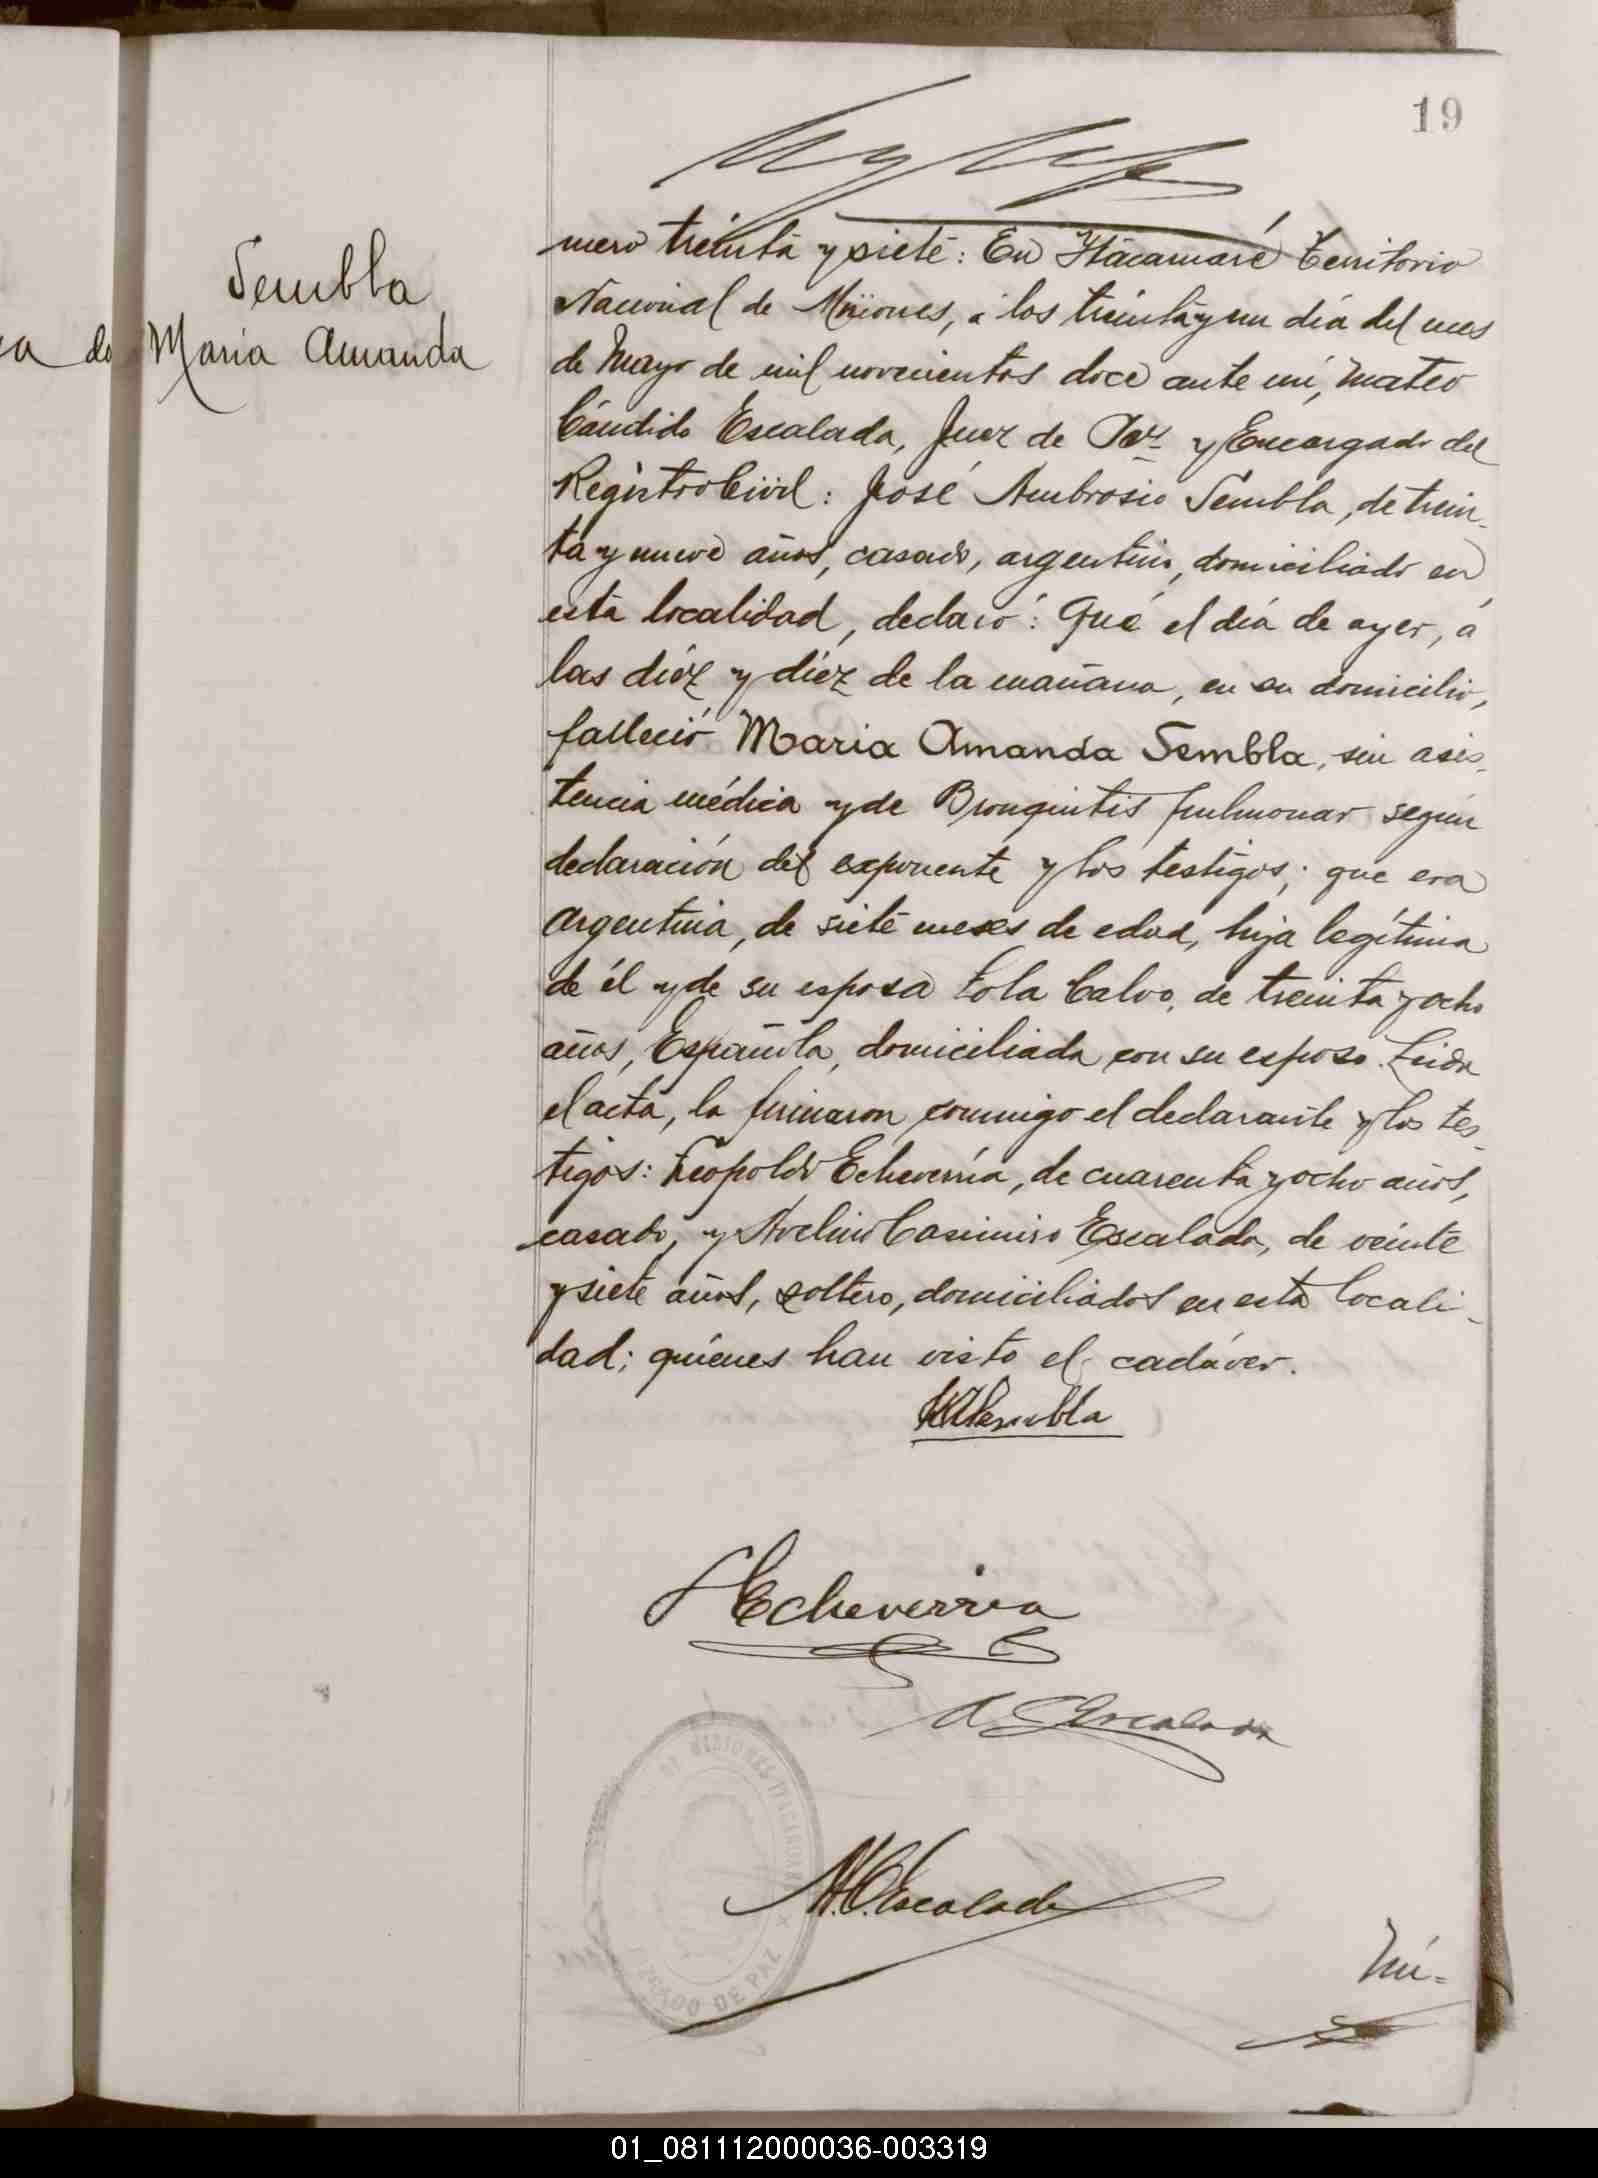 19
Sembla
Maria Amanda
a do
mero treinta y siete: En Itacaruaré Territorio
Nacional de Misiones, á los treinta y un día del mes
de Mayo de mil novecientos doce ante mí, Mateo
Cándido Escalada, Juez de Paz y Encargado del
Registro Civil: José Ambrosio Sembla, de trein-
ta y nueve años, casado, argentino, domiciliado en
esta localidad, declaró: Qué el día de ayer, á
las diéz y diéz de la mañana, en su domicilio,
falleció Maria Amanda Sembla, sin asis-
tencia médica y de Bronquitis pulmonar según
declaración del exponente y los testigos; que era
Argentina, de siete meses de edad, hija legítima
de él y de su esposa Lola Calvo, de treinta y ocho
años, Española, domiciliada con su esposo. Leida
el acta, la firmaron conmigo el declarante y los tes-
tigos: Leopoldo Echeverría, de cuarenta y ocho años,
casado, y Avelino Casimiro Escalada, de veinte
y siete años, soltero, domiciliados en esta locali-
dad; quiénes han visto el cadáver.
Sembla
Echeverria
A. Escalada
M. C. Escalada
DE MISIONES
JUZGADO DE PAZ
Nú-
01_081112000036-003319